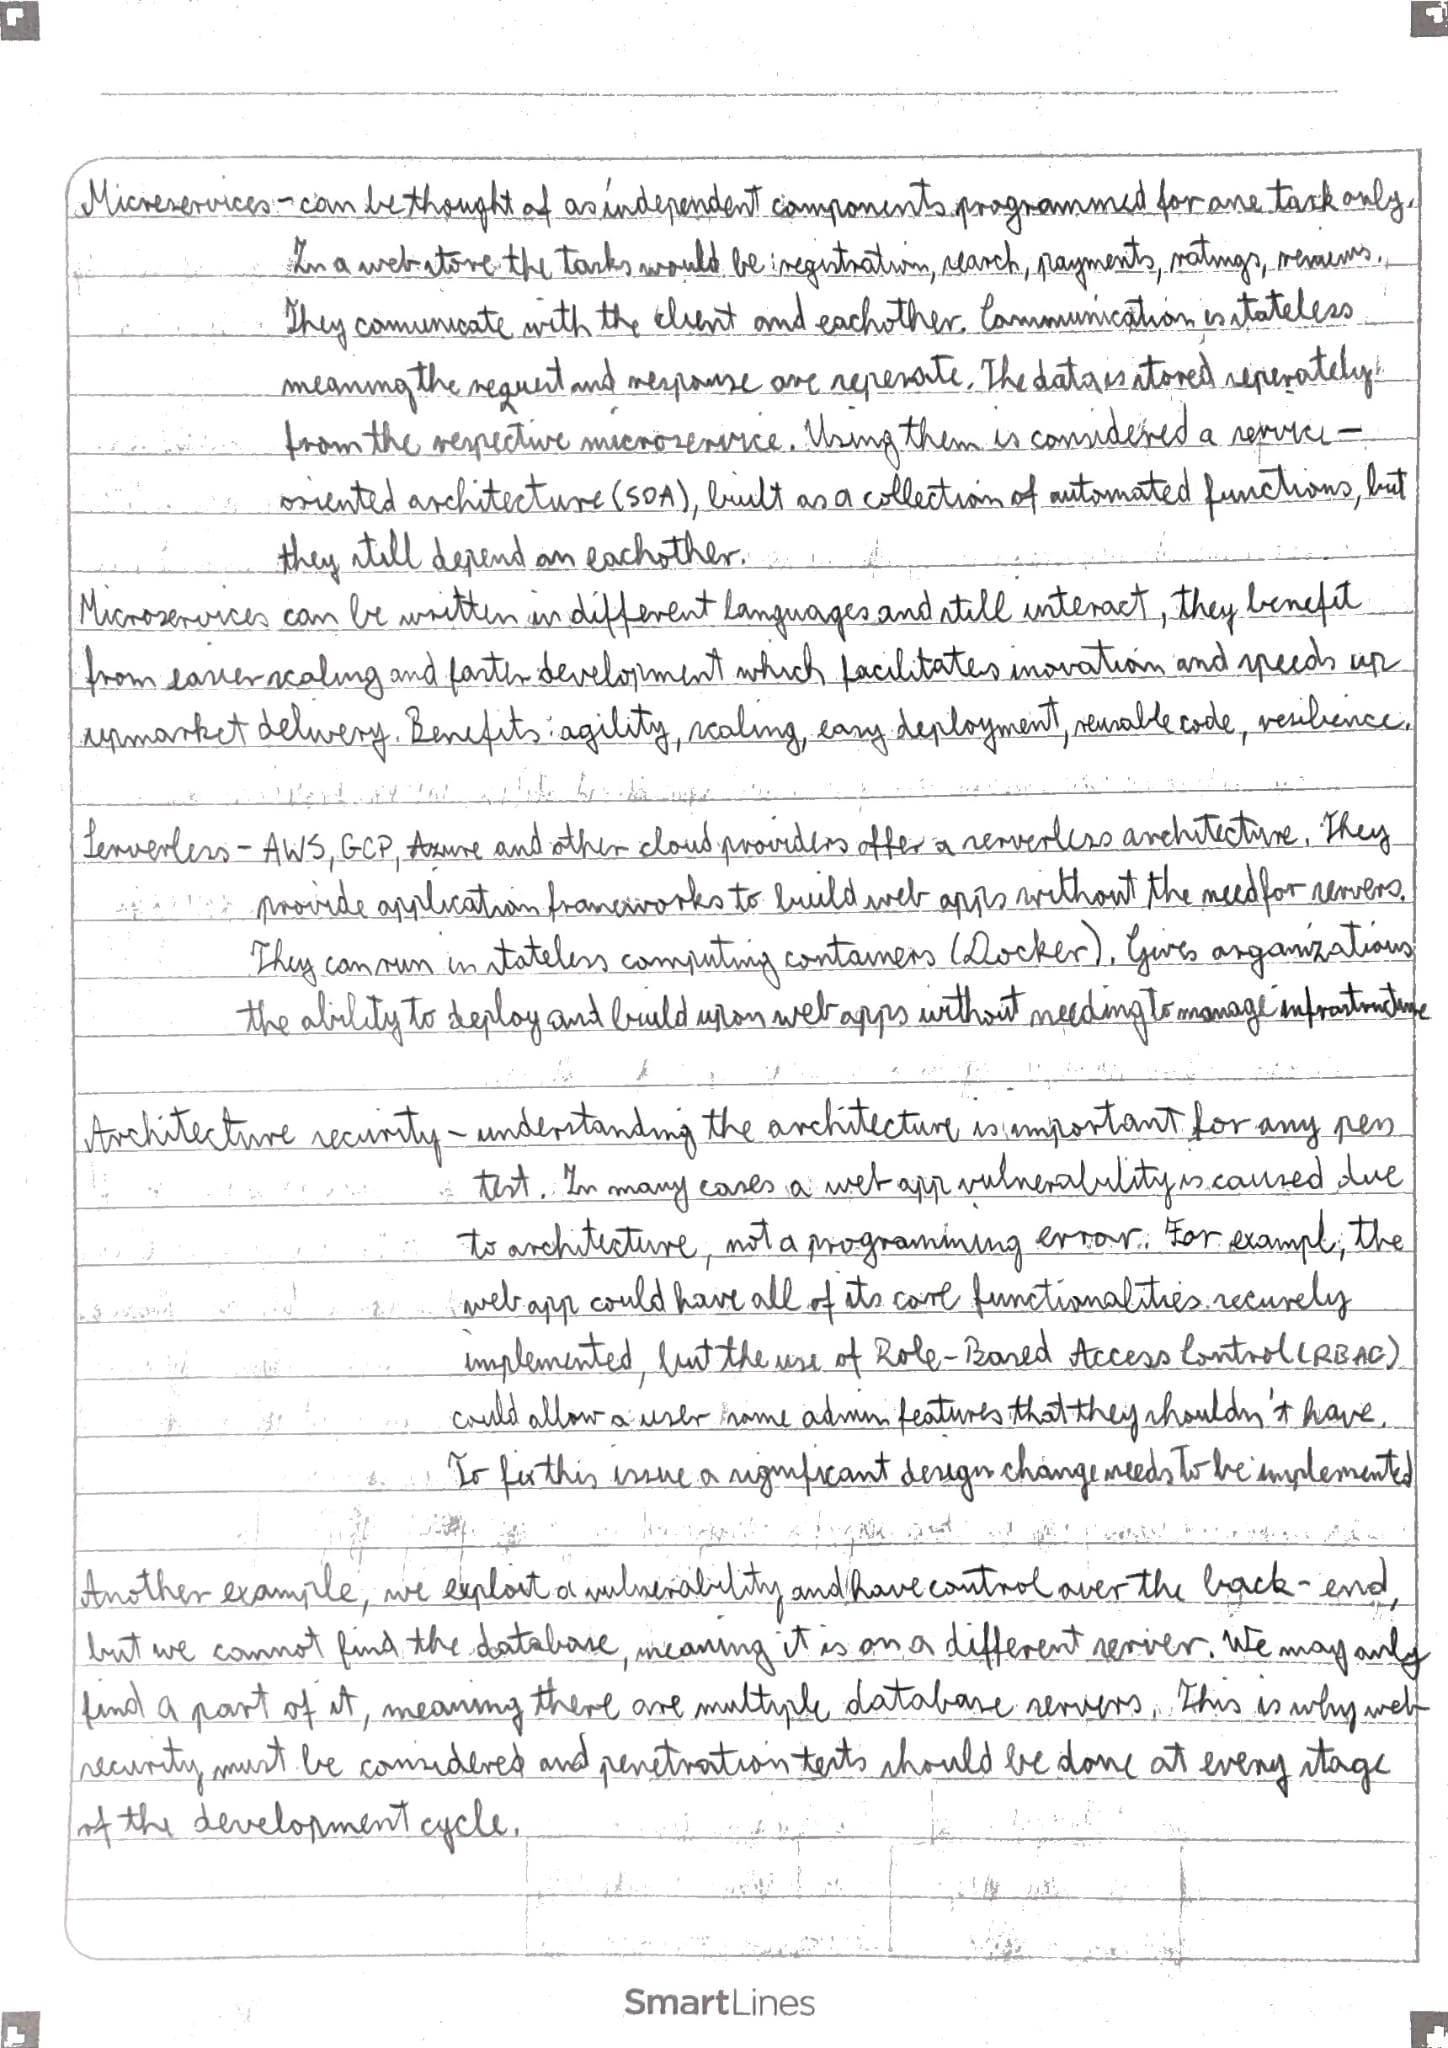 Microservices - can be thought of as independent components programmed for one task only.
In a web store the tasks would be: registration, search, payments, ratings, reviews.
They comunicate with the client and eachother. Communication is stateless
meaning the request and response are seperate. The data is stored seperately
from the respective microservice. Using them is considered a service-
oriented architecture (SOA), built as a collection of automated functions, but
they still depend on eachother.
Microservices can be written in different languages and still interact, they benefit
from easier scaling and faster development which facilitates inovation and speeds up
upmarket delivery. Benefits: agility, scaling, easy deployment, reusable code, resilience.
Serverless - AWS, GCP, Azure and other cloud providers offer a serverless architecture. They
provide application frameworks to build web apps without the need for servers.
They can run in stateless computing containers (Docker). Gives organizations
the ability to deploy and build upon web apps without needing to manage infrastructure
Architecture security - understanding the architecture is important for any pen
test. In many cases a web app vulnerability is caused due
to architecture, not a programming error. For exampl, the
web app could have all of its core functionalities securely
implemented, but the use of Role-Based Access Control (RBAC)
could allow a user some admin features that they shouldn't have.
To fix this issue a significant design change needs to be implemented
Another example, we exploit a vulnerability and have control over the back-end,
but we cannot find the database, meaning it is on a different server. We may only
find a part of it, meaning there are multiple database servers. This is why web
security must be considered and penetration tests should be done at every stage
of the development cycle.
SmartLines